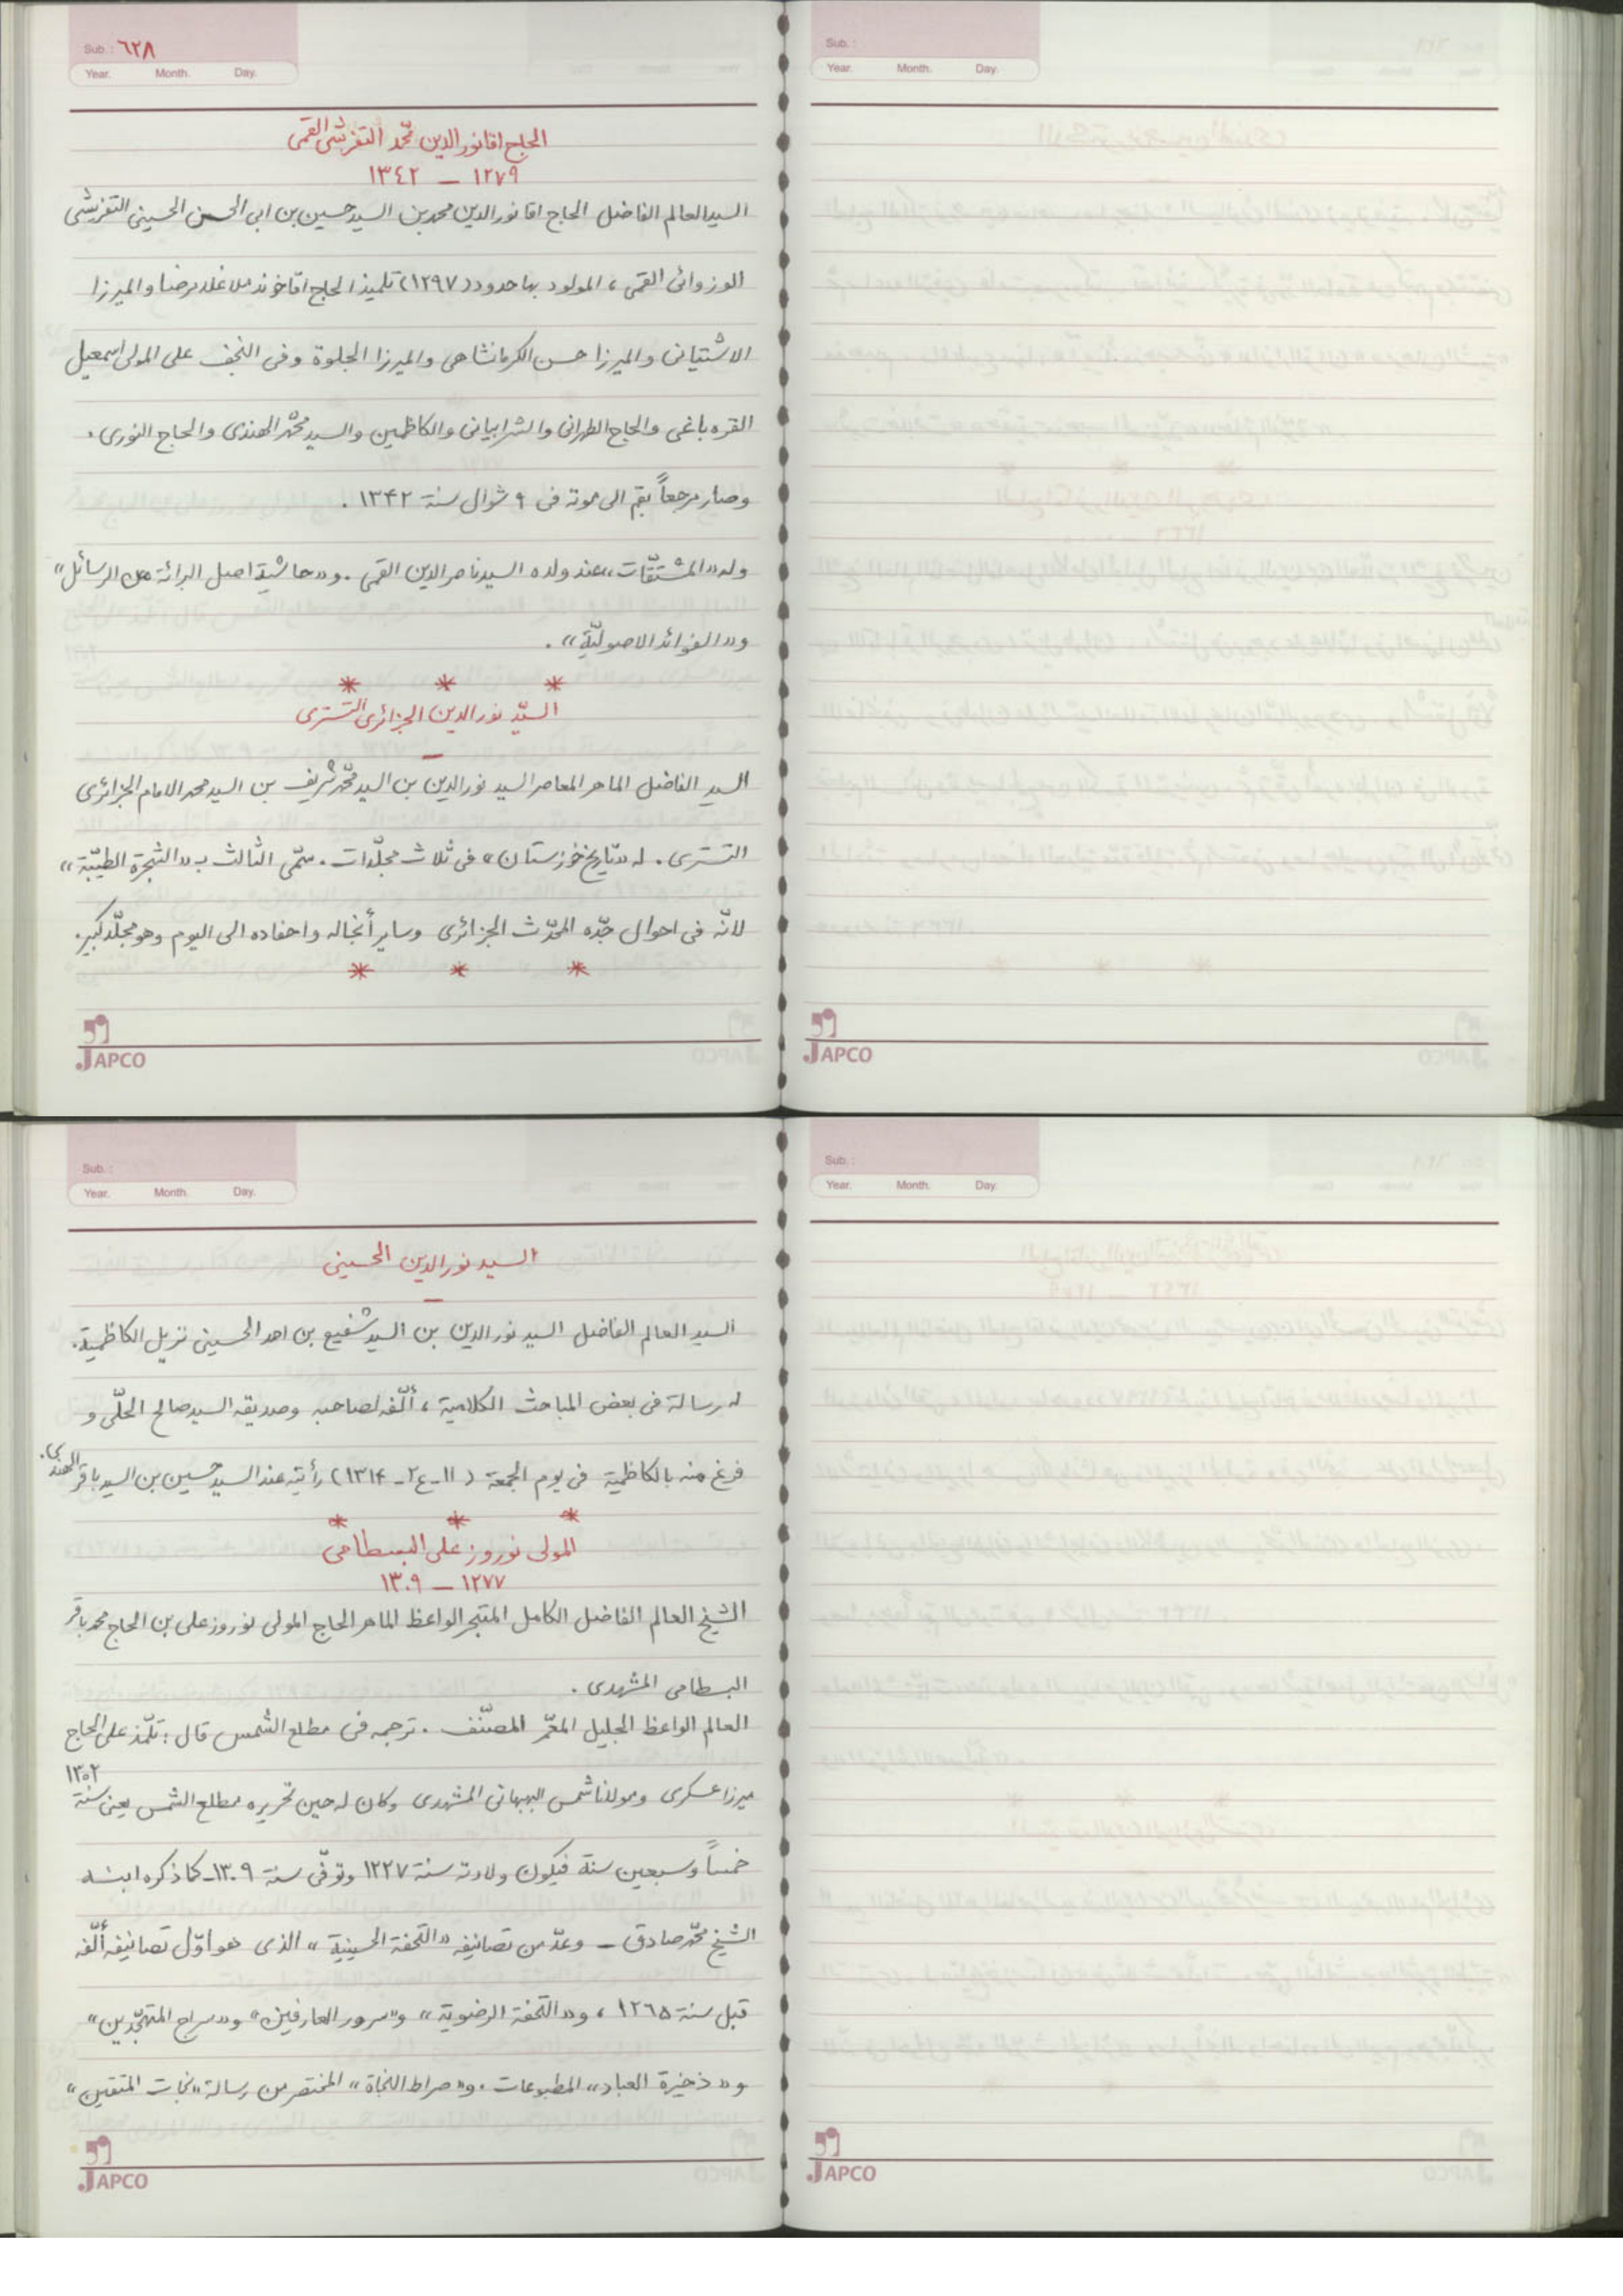 Sub. : ٦٢٨
Year. Month. Day.
الحاج اقا نور الدين محمّد التفرشى القمى
١٢٧٩ — ١٣٤٢
السيد العالم الفاضل الحاج اقا نور الدين محمد بن السيد حسين بن ابى الحسن الحسينى التفرشى
الوزوائى القمى ، المولود بها حدود (١٢٩٧) تلميذ الحاج اقا خوند ملا غلامرضا والميرزا
الاشتيانى والميرزا حسن الكرمانشاهى والميرزا الجلوة وفى النجف على المولى اسمعيل
القره باغى والحاج الطهرانى والشرابيانى والكاظمين والسيد محمّد الهندى والحاج النورى .
وصار مرجعاً بقم الى موته فى ٩ شوال سنة ١٣۴٢ .
وله «المشتقّات» عند ولده السيد ناصر الدين القمى . و«حاشية اصل البرائة من الرسائل»
و«الفوائد الاصوليّة» .
* * *
السيّد نور الدين الجزائرى التسترى
—
السيد الفاضل الماهر المعاصر السيد نور الدين بن السيد محمّد شريف بن السيد محمد الامام الجزائرى
التسترى . له «تاريخ خوزستان» فى ثلاث مجلّدات . سمّى الثالث بـ «الشجرة الطيّبة»
لانّه فى احوال جدّه المحدّث الجزائرى وساير أنجاله واحفاده الى اليوم وهو مجلّد كبير .
* * *
JAPCO
Sub. :
Year. Month. Day.
JAPCO
Sub. :
Year. Month. Day.
السيد نور الدين الحسينى
—
السيد العالم الفاضل السيد نور الدين بن السيد شفيع بن احمد الحسينى نزيل الكاظمية .
له رسالة فى بعض المباحث الكلامية ، ألّفه لصاحبه وصديقه السيد صالح الحلّى و
فرغ منه بالكاظمية فى يوم الجمعة ( ١١ - ع٢ - ١٣١۴ ) رأيته عند السيد حسين بن السيد باقر الهندى .
* * *
المولى نوروز على البسطامى
١٢٧٧ — ١٣٠٩
الشيخ العالم الفاضل الكامل المتبحر الواعظ الماهر الحاج المولى نوروز على بن الحاج محمد باقر
البسطامى المشهدى .
العالم الواعظ الجليل المعمّر المصنّف . ترجمه فى مطلع الشمس قال : تلمّذ على الحاج
ميرزا عسكرى ومولانا شمس البهبهانى المشهدى وكان له حين تحريره مطلع الشمس يعنى سنة ١٣٠٢
خمساً وسبعين سنة فيكون ولادته سنة ١٢٢٧ وتوفّى سنة ١٣٠٩ - كما ذكره ابنه
الشيخ محمّد صادق — وعدّ من تصانيفه «التحفة الحسينية» الذى هو اوّل تصانيفه ألّفه
قبل سنة ١٢٦٥ ، و«التحفة الرضوية» و«سرور العارفين» و«سراج المتهجّدين»
و«ذخيرة العباد» المطبوعات . و«صراط النجاة» المختصر من رسالة «نجات المتقين»
JAPCO
Sub. :
Year. Month. Day.
JAPCO